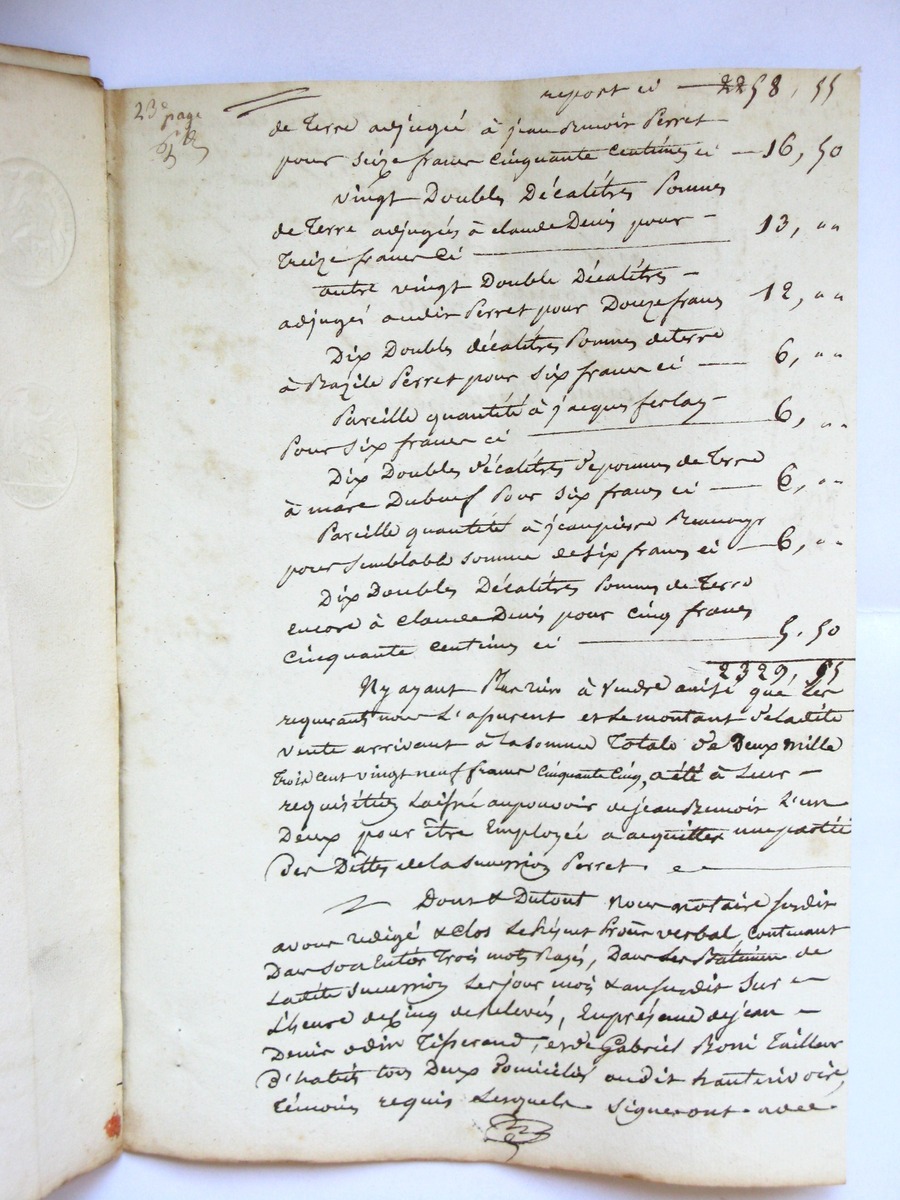 23e page
report ci — 2258, 55
de Terre adjugé à jean Benoir Perret
pour seize francs cinquante centimes ci — 16, 50
vingt Doubles Décalitres Pommes
de Terre adjugés à claude Denis pour — 13, " "
Treize francs ci
autre vingt Double Décalitres —
adjugés audit Perret pour Douze francs 12, " "
Dix Doubles décalitres Pommes de terre
à Bazile Perret pour six francs ci — 6, " "
Pareille quantité à jacques ferlay —
Pour six francs ci — 6, " "
Dix Doubles décalitres de pommes de Terre
à marc Duboeuf Pour six francs ci — 6, " "
Pareille quantité à jean pierre
pour semblable somme de six francs ci — 6, " "
Dix Doubles Décalitres Pommes de Terre
encore à Claude Denis pour cinq francs
cinquante centimes ci — 5. 50
2329, 55
N'y ayant Plus rien à vendre que les
requerants nous L'assurent et le montant de ladite
vente arrivant à la somme Totale de Deux mille
Trois cent vingt neuf francs cinquante cinq, a été à Leur —
requisition Laissé au pouvoir de jean Benoir L'un
Deux pour être Employée a acquitter une partie
Des Dettes de la succession Perret. —
Dont & Dutout Nous notaire susdit
avons redigé & clos le présent Procès verbal contenant
Dans son Entier Trois mots Rayés, Dans Les Batimens de
Ladite succession Les jour mois & an susdit sur —
L'heure de cinq de relevée, En présence de jean —
Denis odin Tisserand, et de Gabriel Tailleur
D'habits tous Deux Domiciliés audit hauterivoire,
Témoins requis Lesquels signeront avec